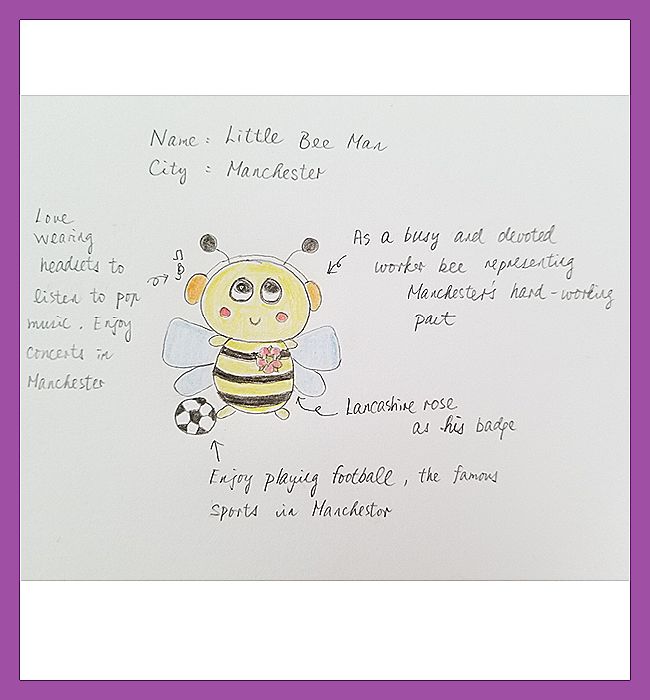 Name : Little Bee Man
City : Manchester
Love
wearing
headsets to
listen to pop
music. Enjoy
concerts in
Manchester
As a busy and devoted
worker bee representing
Manchester's hard-working
past
Lancashire rose
as his badge
Enjoy playing football, the famous
sports in Manchester